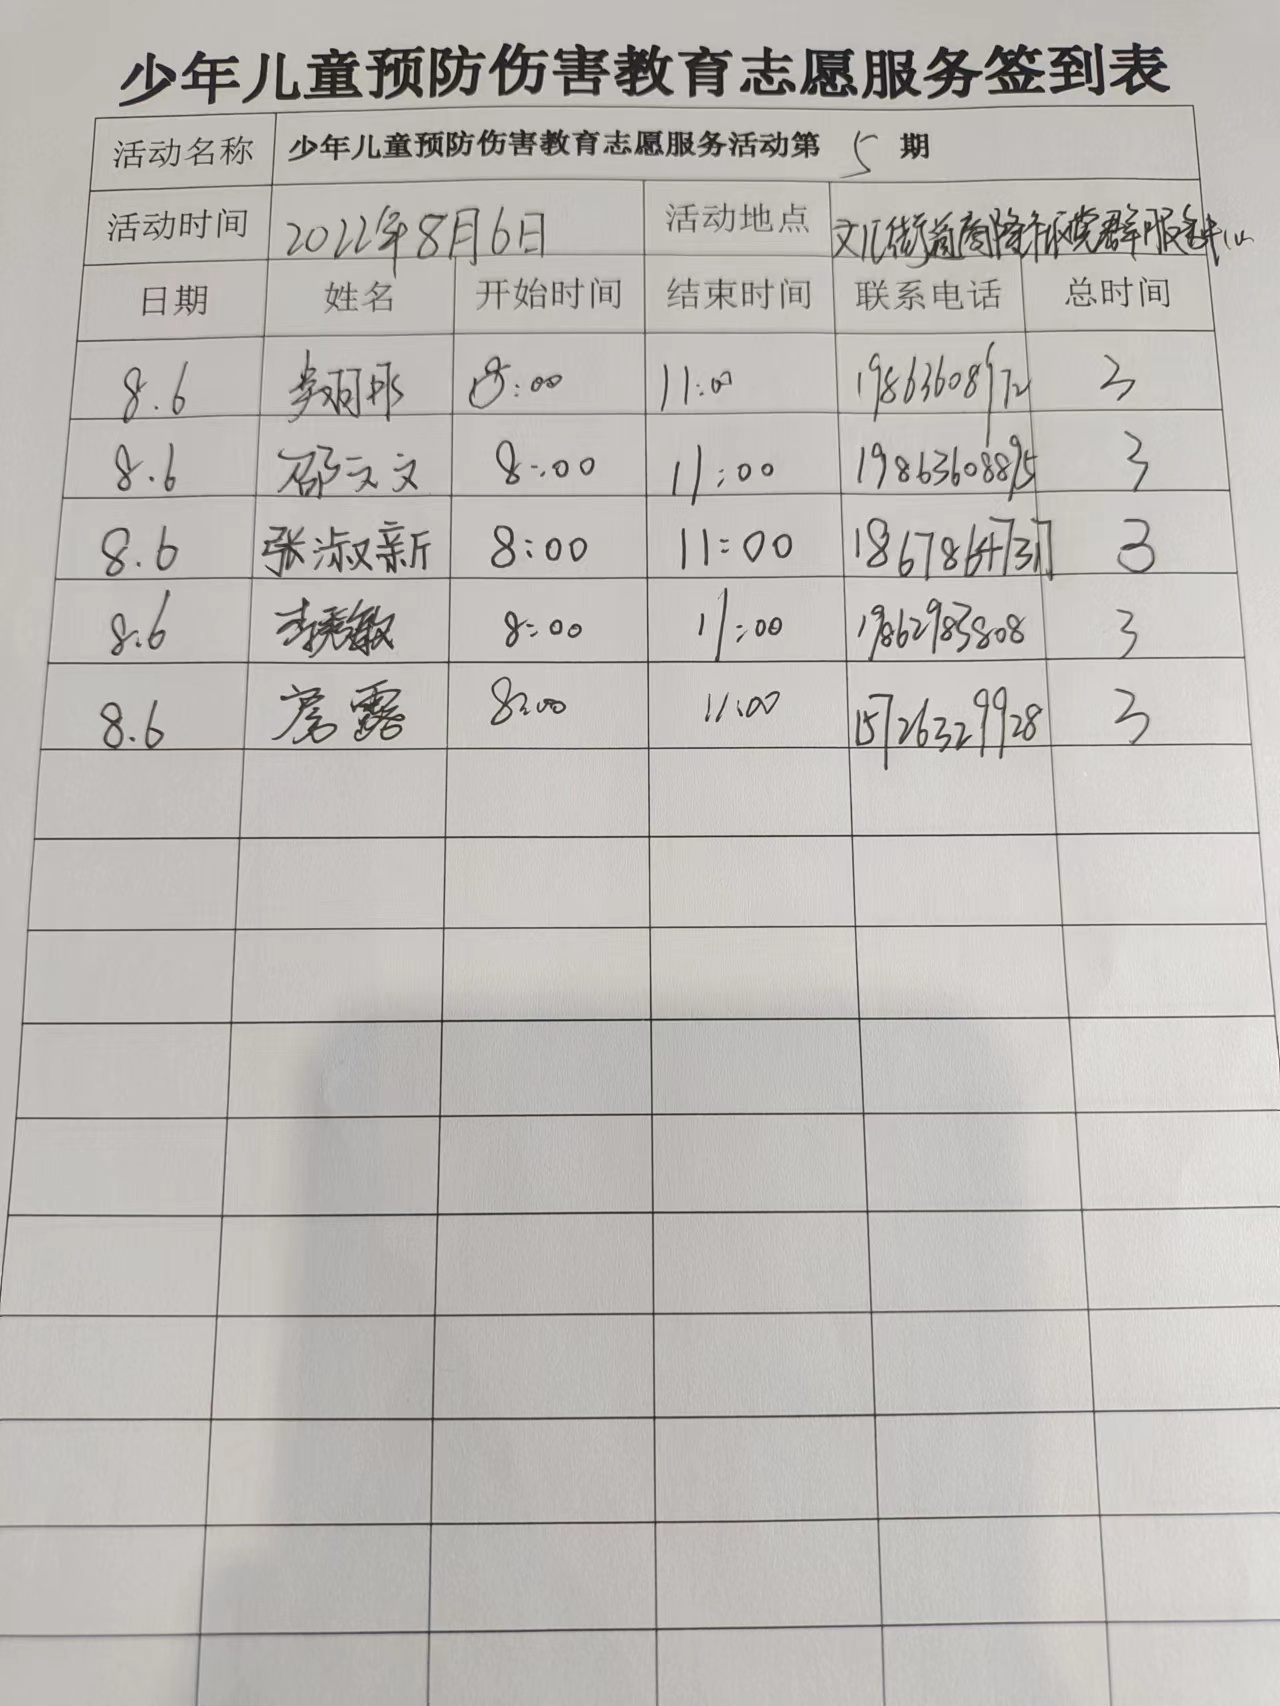 少年儿童预防伤害教育志愿服务签到表
活动名称 少年儿童预防伤害教育志愿服务活动第 5 期
活动时间 2022年8月6日 活动地点 文化街道商隆社区党群服务中心
日期 姓名 开始时间 结束时间 联系电话 总时间
8.6 8:00 11:00 19863608972 3
8.6 邵文文 8:00 11:00 19863608895 3
8.6 张淑新 8:00 11:00 18678647317 3
8.6 李秀敏 8:00 11:00 19862983808 3
8.6 露 8:00 11:00 15726329928 3